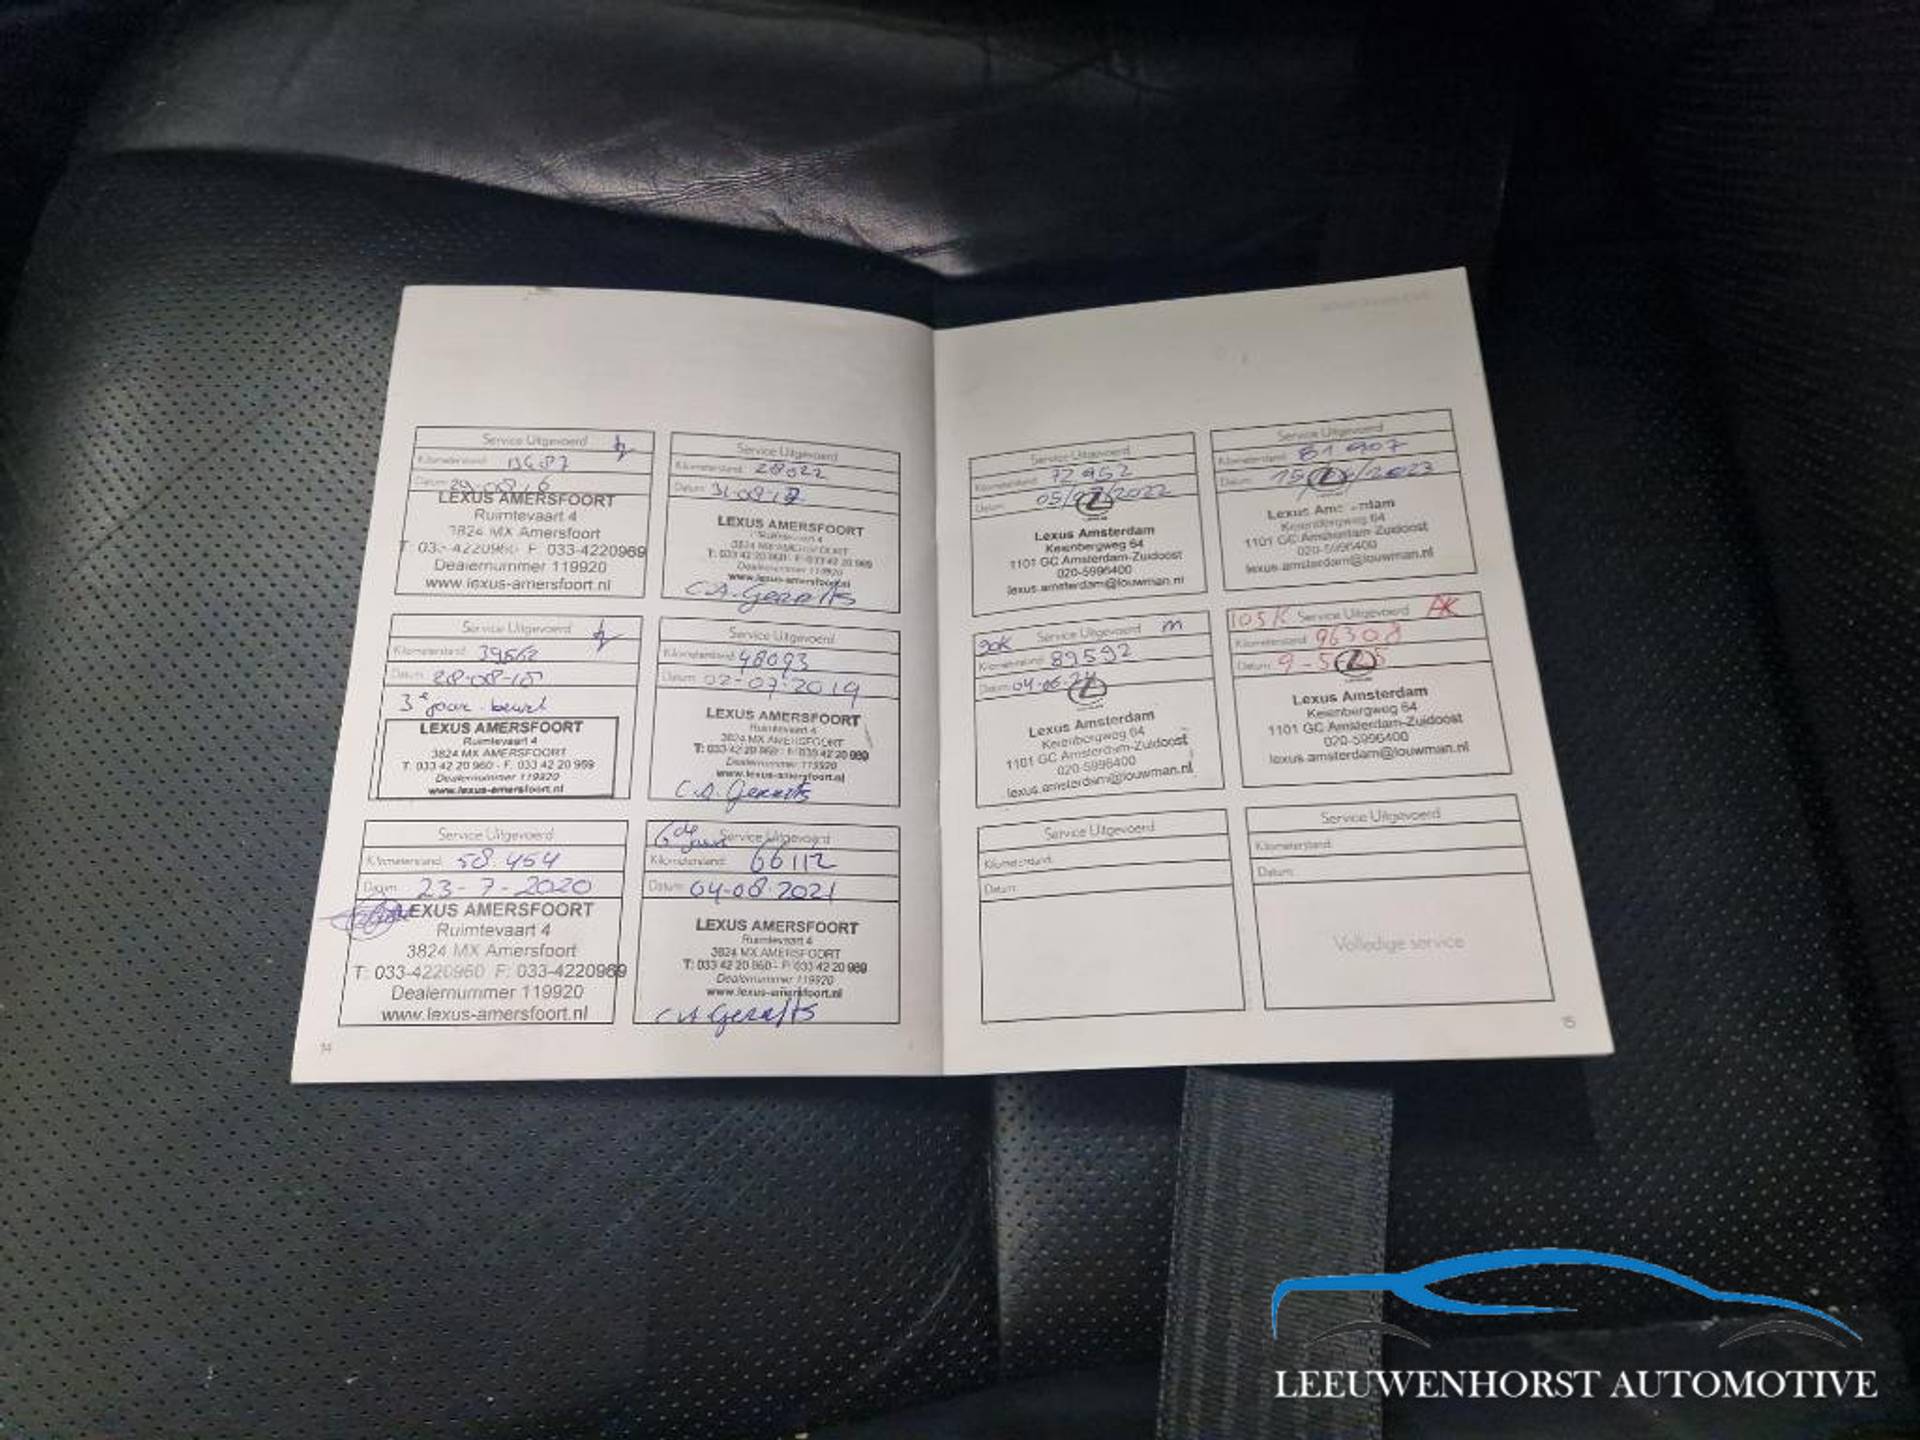 Service Uitgevoerd
Kilometerstand:
Datum:
LEXUS AMERSFOORT
Ruimtevaart 4
3824 MX Amersfoort
F: 033-4220969
Dealernummer 119920
www.lexus-amersfoort.nl
Service Uitgevoerd
Kilometerstand: 28022
Datum: 31-08-17
LEXUS AMERSFOORT
Ruimtevaart 4
3824 MX AMERSFOORT
T: 033 42 20 960 - F: 033 42 20 969
Dealernummer 119920
www.lexus-amersfoort.nl
C.A. Geraets
Service Uitgevoerd
Kilometerstand:
Datum:
3e jaar beurt
LEXUS AMERSFOORT
Ruimtevaart 4
3824 MX AMERSFOORT
T. 033 42 20 960 - F. 033 42 20 969
Dealernummer 119920
www.lexus-amersfoort.nl
Service Uitgevoerd
Kilometerstand: 48093
Datum: 02-07-2019
LEXUS AMERSFOORT
Ruimtevaart 4
3824 MX AMERSFOORT
T: 033 42 20 960 - F: 033 42 20 969
Dealernummer 119920
www.lexus-amersfoort.nl
C.A. Geraets
Service Uitgevoerd
Kilometerstand: 58.454
Datum: 23-7-2020
LEXUS AMERSFOORT
Ruimtevaart 4
3824 MX Amersfoort
T: 033-4220960 F: 033-4220969
Dealernummer 119920
www.lexus-amersfoort.nl
Service Uitgevoerd
Kilometerstand: 66112
Datum: 04-08-2021
LEXUS AMERSFOORT
Ruimtevaart 4
3824 MX AMERSFOORT
T: 033 42 20 960 - F: 033 42 20 969
Dealernummer 119920
www.lexus-amersfoort.nl
C.A. Geraets
14
Service Uitgevoerd
Kilometerstand: 72952
Datum: 05/ /2022
Lexus Amsterdam
Keienbergweg 64
1101 GC Amsterdam-Zuidoost
020-5996400
lexus.amsterdam@louwman.nl
Service Uitgevoerd
Kilometerstand: 81907
Datum: 15/ /2023
Lexus Amsterdam
Keienbergweg 64
1101 GC Amsterdam-Zuidoost
020-5996400
lexus.amsterdam@louwman.nl
90K Service Uitgevoerd m
Kilometerstand: 89592
Datum: 04-06-24
Lexus Amsterdam
Keienbergweg 64
1101 GC Amsterdam-Zuidoost
020-5996400
lexus.amsterdam@louwman.nl
105K Service Uitgevoerd AK
Kilometerstand: 96308
Datum: 9-5-25
Lexus Amsterdam
Keienbergweg 64
1101 GC Amsterdam-Zuidoost
020-5996400
lexus.amsterdam@louwman.nl
Service Uitgevoerd
Kilometerstand:
Datum:
Service Uitgevoerd
Kilometerstand:
Datum:
Volledige service
15
LEEUWENHORST AUTOMOTIVE